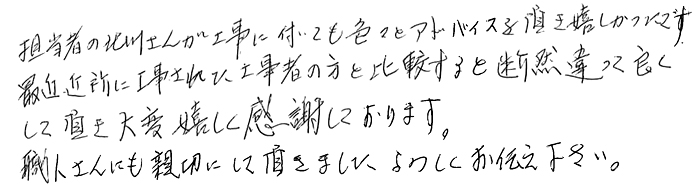 担当者の北川さんが工事に付いても色々とアドバイスを頂き嬉しかったです。
最近近所に工事された工事者の方と比較すると断然違って良く
して頂き大変嬉しく感謝しております。
職人さんにも親切にして頂きました、よろしくお伝え下さい。